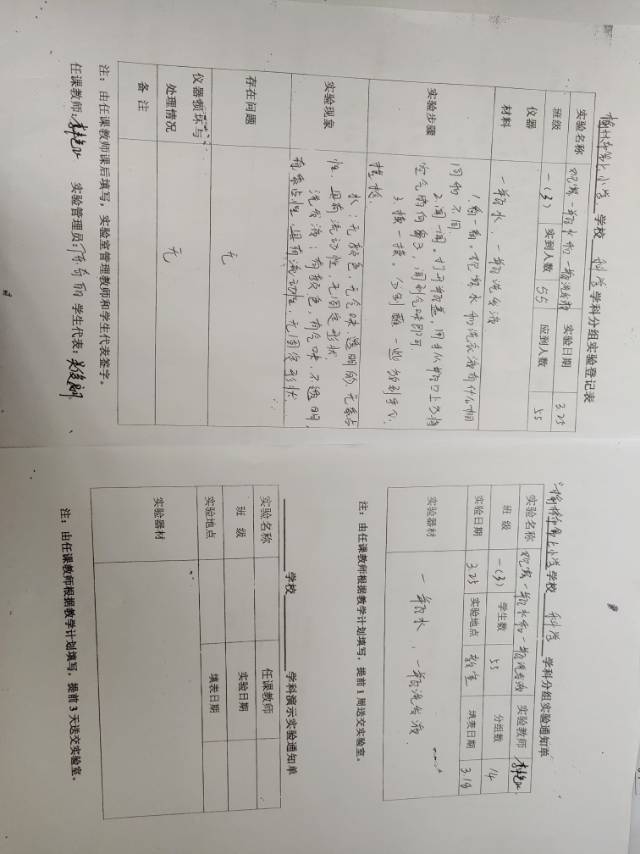 学校 科学 学科分组实验登记表
实验名称 观察一瓶水和一瓶洗发液
班级 一(3) 实到人数 55 实验日期 3.25 应到人数 55
仪器
材料 一瓶水、一瓶洗发液
实验步骤
1.看一看,观察水和洗发液有什么相
同和不同
2.闻一闻,打开瓶盖,用手从瓶口上方将
空气扇向鼻子,闻到气味即可.
3.摸一摸,分别蘸一些
实验现象
水:无颜色、无气味、透明的、无黏
性、具有流动性,无固定形状
洗发液:有颜色,有气味,不透明,
有黏性,具有流动性,无固定形状
存在问题 无
仪器损坏与
处理情况 无
备注
注:由任课教师课后填写,实验室管理教师和学生代表签字。
任课教师: 实验管理员: 学生代表:
学校 科学 学科分组实验通知单
实验名称 观察一瓶水和一瓶洗发液 实验教师
班级 一(3) 学生数 55 分组数 14
实验日期 3.25 实验地点 教室 填表日期 3.19
实验器材 一瓶水、一瓶洗发液.
注:由任课教师根据教学计划填写,提前1周送交实验室。
学校 学科演示实验通知单
实验名称 任课教师
班级 实验日期
实验地点 填表日期
实验器材
注:由任课教师根据教学计划填写,提前3天送交实验室。